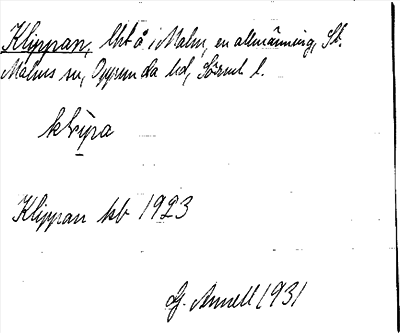 Klippan, lht å i Malm, en allmänning, St.
Malms sn, Oppunda hd, Söderml l.
Klippan kb 1923
G. Annell 1931